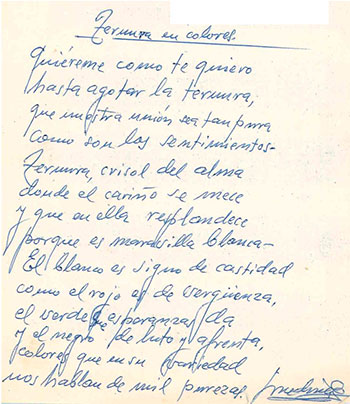 Ternura en colores.
Quiéreme como te quiero
hasta agotar la ternura,
que nuestra unión sea tan pura
como son los sentimientos-
Ternura, crisol del alma
donde el cariño se mece
y que en ella resplandece
porque es maravilla blanca-
El blanco es signo de castidad
como el rojo es de vergüenza,
el verde esperanzas da
y el negro de luto y afrenta,
colores que en su variedad
nos hablan de mil purezas.